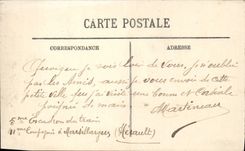 CARTE POSTALE
CORRESPONDANCE
ADRESSE
Quoique je sois loin de vous, je n'oublie
pas les Amis, aussi je vous envoi de cette
petite ville que j'ai visité une bonne et Cordiale
poignée de main
Martineau
5ème Escadron du train
11ème Compagnie à Marsillargues (Hérault)